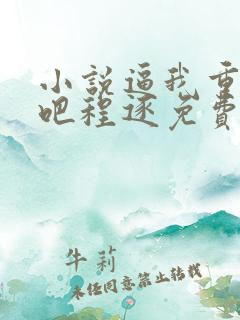 小说逼我重
吧程逐免费
牛莉
未经同意禁止转载